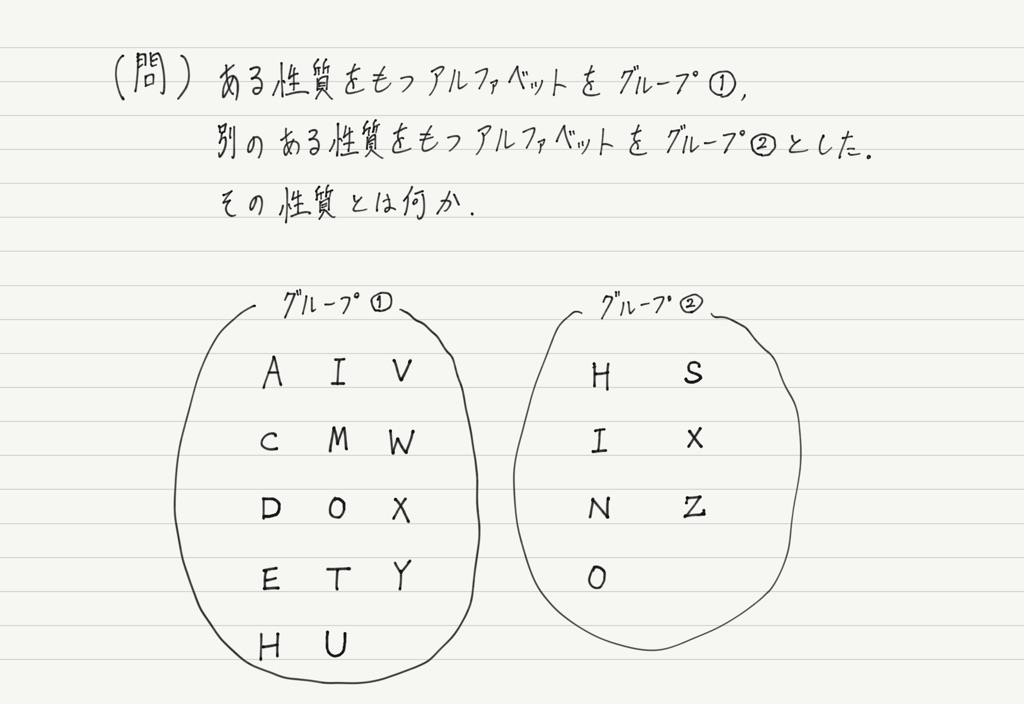 (問) ある性質をもつアルファベットをグループ①,
別のある性質をもつアルファベットをグループ②とした.
その性質とは何か.
グループ① グループ②
A I V H S
C M W I X
D O X N Z
E T Y O
H U